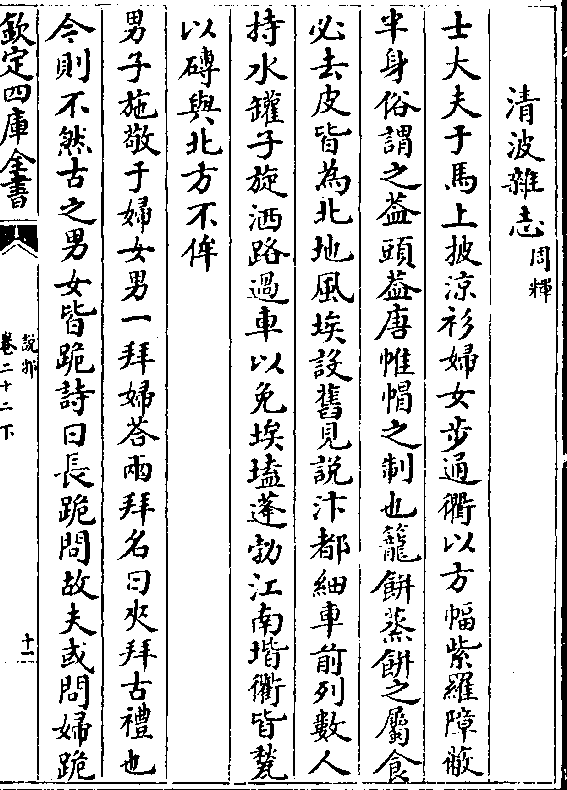 清波雜志周煇
士大夫于馬上披涼衫婦女步通衢以方幅紫羅障蔽
半身俗謂之葢頭葢唐帷帽之制也籠餅蒸餅之屬食
必去皮皆為北地風埃設舊見說汴都細車前列數人
持水罐子旋洒路過車以免埃𡏖蓬勃江南堦衢皆甃
以磚與北方不侔
男子施敬于婦女男一拜婦荅兩拜名曰夾拜古禮也
今則不然古之男女皆跪詩曰長跪問故夫或問婦跪
欽定四庫全書
說郛
卷二十二下
十一